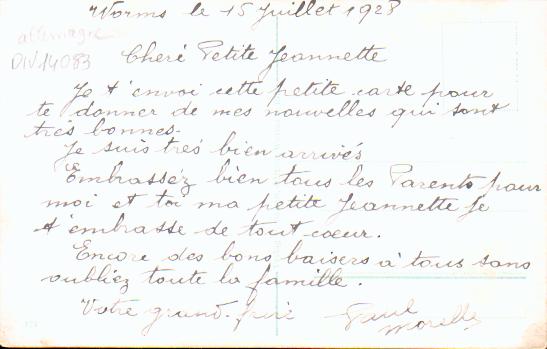 Worms le 15 Juillet 1928
allemagne
DIV14083
Cheré Petite Jeannette
Je t'envoi cette petite carte pour
te donner de mes nouvelles qui sont
très bonnes.
Je suis très bien arrivés
Embrassez bien tous les Parents pour
moi et toi ma petite Jeannette Je
t'embrasse de tout coeur.
Encore des bons baisers à tous sans
oubliez toute la famille.
Votre grand
Paul